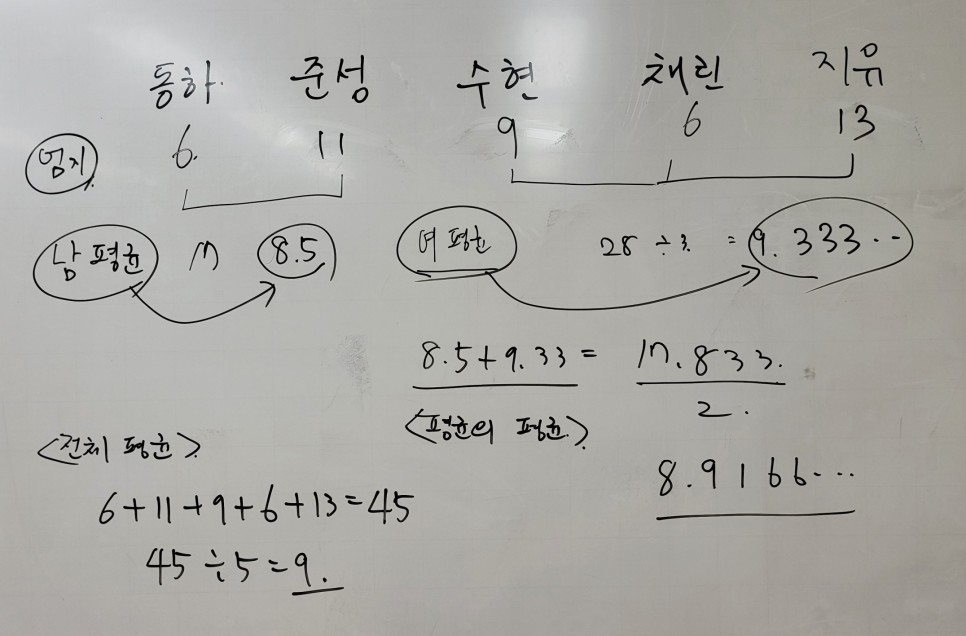 동하 준성 수현 채린 지유
엄지 6 11 9 6 13
남평균 8.5 여 평균 28 ÷ 3 = 9.333...
8.5+9.33= 17.833.
2.
<평균의 평균>
<전체 평균>
8.9166...
6+11+9+6+13=45
45÷5=9.